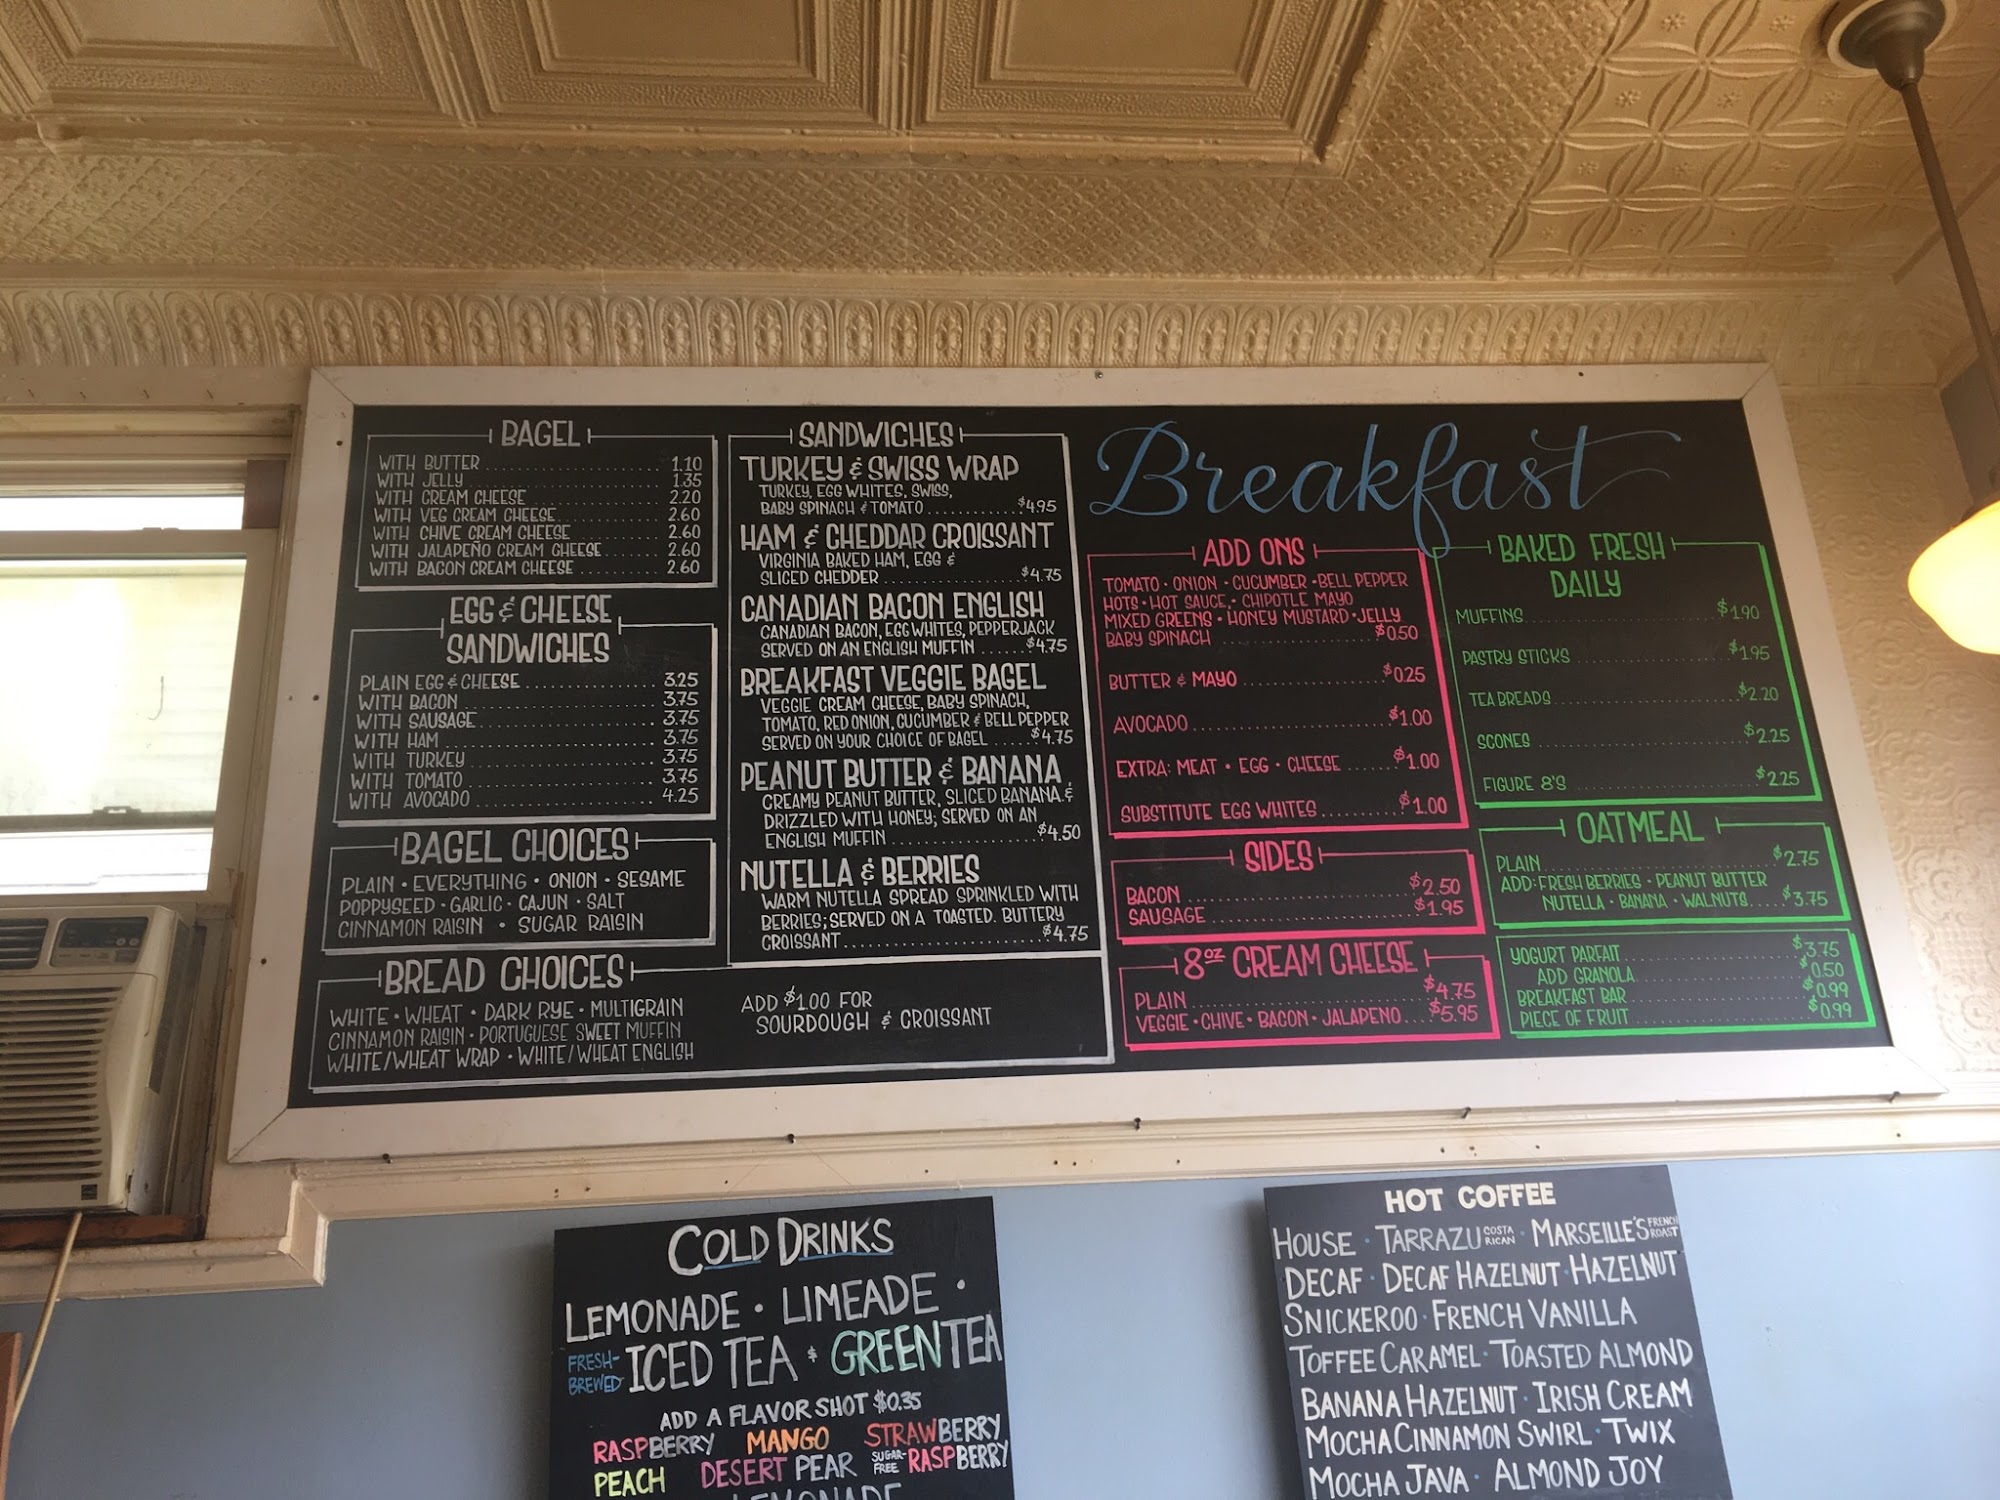 BAGEL
WITH BUTTER 1.10
WITH JELLY 1.35
WITH CREAM CHEESE 2.20
WITH VEG CREAM CHEESE 2.60
WITH CHIVE CREAM CHEESE 2.60
WITH JALAPEÑO CREAM CHEESE 2.60
WITH BACON CREAM CHEESE 2.60
EGG & CHEESE
SANDWICHES
PLAIN EGG & CHEESE 3.25
WITH BACON 3.75
WITH SAUSAGE 3.75
WITH HAM 3.75
WITH TURKEY 3.75
WITH TOMATO 3.75
WITH AVOCADO 4.25
BAGEL CHOICES
PLAIN • EVERYTHING • ONION • SESAME
POPPYSEED • GARLIC • CAJUN • SALT
CINNAMON RAISIN • SUGAR RAISIN
BREAD CHOICES
WHITE • WHEAT • DARK RYE • MULTIGRAIN
CINNAMON RAISIN • PORTUGUESE SWEET MUFFIN
WHITE/WHEAT WRAP • WHITE/WHEAT ENGLISH
ADD $1.00 FOR
SOURDOUGH & CROISSANT
SANDWICHES
TURKEY & SWISS WRAP
TURKEY, EGG WHITES, SWISS,
BABY SPINACH & TOMATO $4.95
HAM & CHEDDAR CROISSANT
VIRGINIA BAKED HAM, EGG &
SLICED CHEDDER $4.75
CANADIAN BACON ENGLISH
CANADIAN BACON, EGG WHITES, PEPPERJACK
SERVED ON AN ENGLISH MUFFIN $4.75
BREAKFAST VEGGIE BAGEL
VEGGIE CREAM CHEESE, BABY SPINACH,
TOMATO, RED ONION, CUCUMBER & BELL PEPPER
SERVED ON YOUR CHOICE OF BAGEL $4.75
PEANUT BUTTER & BANANA
CREAMY PEANUT BUTTER, SLICED BANANA &
DRIZZLED WITH HONEY; SERVED ON AN
ENGLISH MUFFIN $4.50
NUTELLA & BERRIES
WARM NUTELLA SPREAD SPRINKLED WITH
BERRIES; SERVED ON A TOASTED, BUTTERY
CROISSANT $4.75
Breakfast
ADD ONS
TOMATO • ONION • CUCUMBER • BELL PEPPER
HOTS • HOT SAUCE • CHIPOTLE MAYO
MIXED GREENS • HONEY MUSTARD • JELLY
BABY SPINACH $0.50
BUTTER & MAYO $0.25
AVOCADO $1.00
EXTRA: MEAT • EGG • CHEESE $1.00
SUBSTITUTE EGG WHITES $1.00
SIDES
BACON $2.50
SAUSAGE $1.95
8OZ CREAM CHEESE
PLAIN $4.75
VEGGIE • CHIVE • BACON • JALAPENO $5.95
BAKED FRESH
DAILY
MUFFINS $1.90
PASTRY STICKS $1.95
TEA BREADS $2.20
SCONES $2.25
FIGURE 8'S $2.25
OATMEAL
PLAIN $2.75
ADD: FRESH BERRIES • PEANUT BUTTER
NUTELLA • BANANA • WALNUTS $3.75
YOGURT PARFAIT $3.75
ADD GRANOLA $0.50
BREAKFAST BAR $0.99
PIECE OF FRUIT $0.99
COLD DRINKS
LEMONADE • LIMEADE •
FRESH-BREWED ICED TEA & GREEN TEA
ADD A FLAVOR SHOT $0.35
RASPBERRY MANGO STRAWBERRY
PEACH DESERT PEAR SUGAR-FREE RASPBERRY
LEMONADE
HOT COFFEE
HOUSE • TARRAZU COSTA RICAN • MARSEILLE'S FRENCH ROAST
DECAF • DECAF HAZELNUT • HAZELNUT
SNICKEROO • FRENCH VANILLA
TOFFEE CARAMEL • TOASTED ALMOND
BANANA HAZELNUT • IRISH CREAM
MOCHA CINNAMON SWIRL • TWIX
MOCHA JAVA • ALMOND JOY